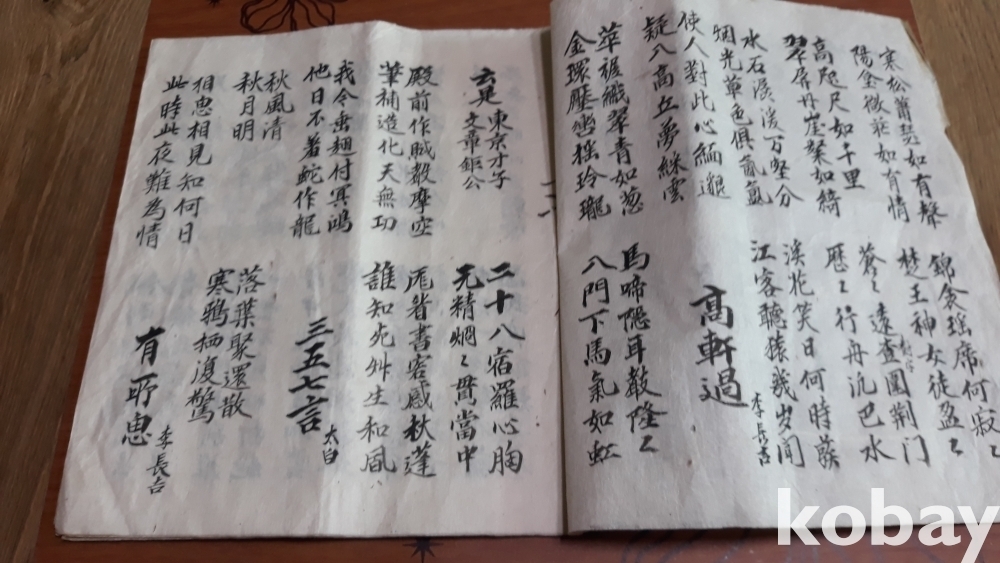 寒松蕭瑟如有聲
陽台微茫如有情
錦衾瑤席何寂〻
楚王神女徒盈〻
高咫尺如千里
翠屏丹崖粲如綺
蒼〻遠查圍荊门
歷〻行舟汎巴水
水石潺湲万壑分
烟光草色俱氤氳
溪花笑日何時發
江客聽猿幾岁闻
使人對此心緬邈
疑入高丘夢綵雲
高軒過
李長吉
華裾織翠青如葱
金環壓轡摇玲瓏
馬啼隱耳聲隆〻
入門下馬氣如虹
云是東京才子
文章鉅公
二十八宿羅心胸
元精炯〻貫當中
殿前作賦聲摩空
筆補造化天無功
厖眉書客感秋蓬
誰知死艸生和風
我今垂翅付冥鴻
他日不羞蛇作龍
三五七言
太白
秋風清
秋月明
落葉聚還散
寒鴉栖復驚
相思相見知何日
此時此夜難為情
有所思
李長吉
kobay